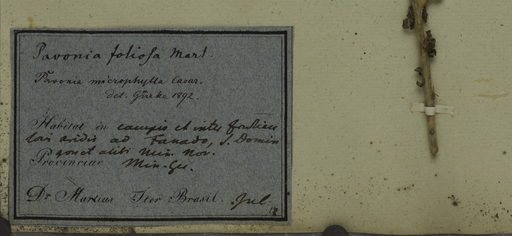 Pavonia foliosa Mart.
Pavonia microphylla Casar.
det. Gürke 1892.
Habitat in campis et inter
ad Fanado, S. Domin
et alibi Min. Nov.
Provinciae Min. Ge.
Dr. Martius Iter Brasil. Jul.